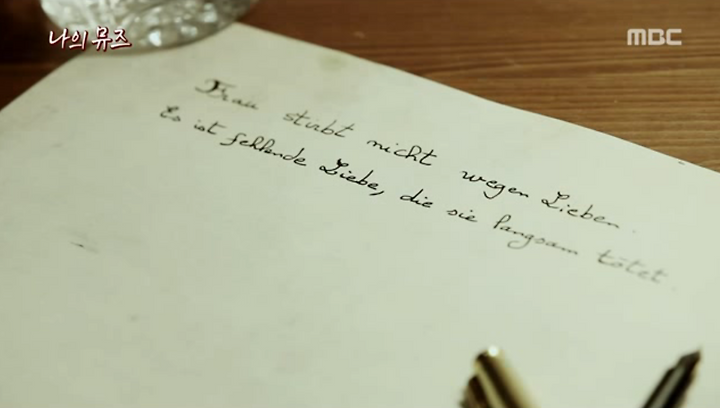 나의 뮤즈
MBC
Frau stirbt nicht wegen Lieben.
Es ist fehlende Liebe, die sie langsam tötet.